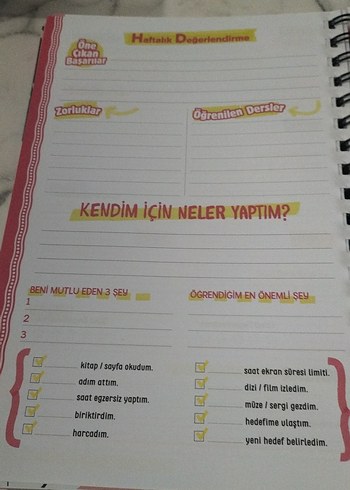 Haftalık Değerlendirme
Öne
Çıkan
Başarılar
Zorluklar
Öğrenilen Dersler
KENDİM İÇİN NELER YAPTIM?
BENİ MUTLU EDEN 3 ŞEY
1
2
3
ÖĞRENDİĞİM EN ÖNEMLİ ŞEY
kitap / sayfa okudum.
adım attım.
saat egzersiz yaptım.
biriktirdim.
harcadım.
saat ekran süresi limiti.
dizi / film izledim.
müze / sergi gezdim.
hedefime ulaştım.
yeni hedef belirledim.